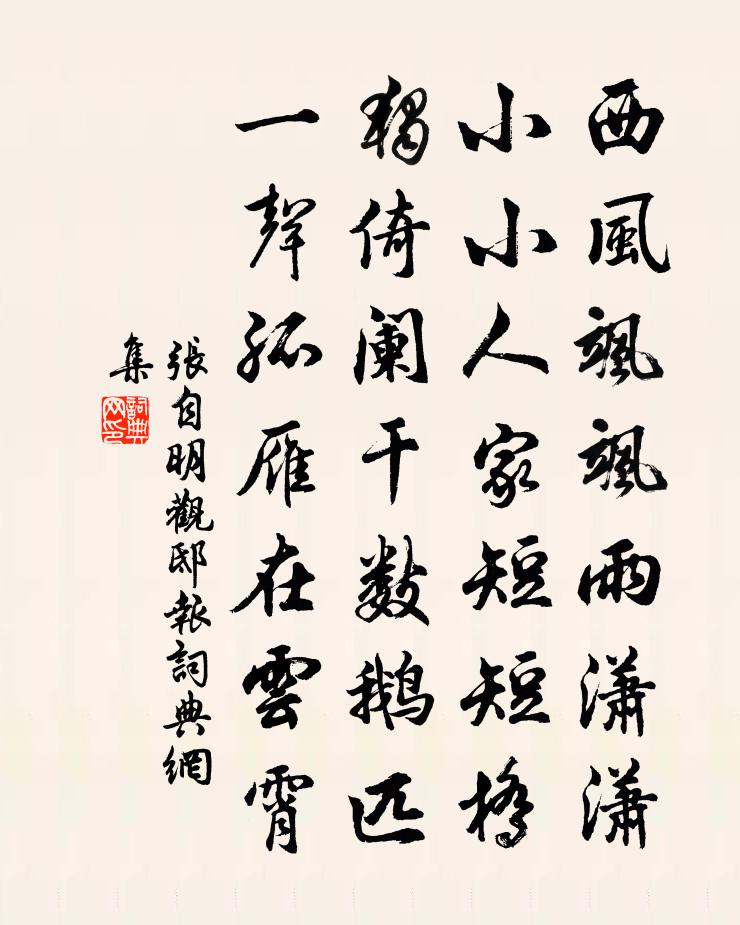 西風颯颯雨瀟瀟
小小人家短短橋
獨倚闌干數鵝匹
一聲孤雁在雲霄
張自明觀邸報詞典網
集
詞典
网印